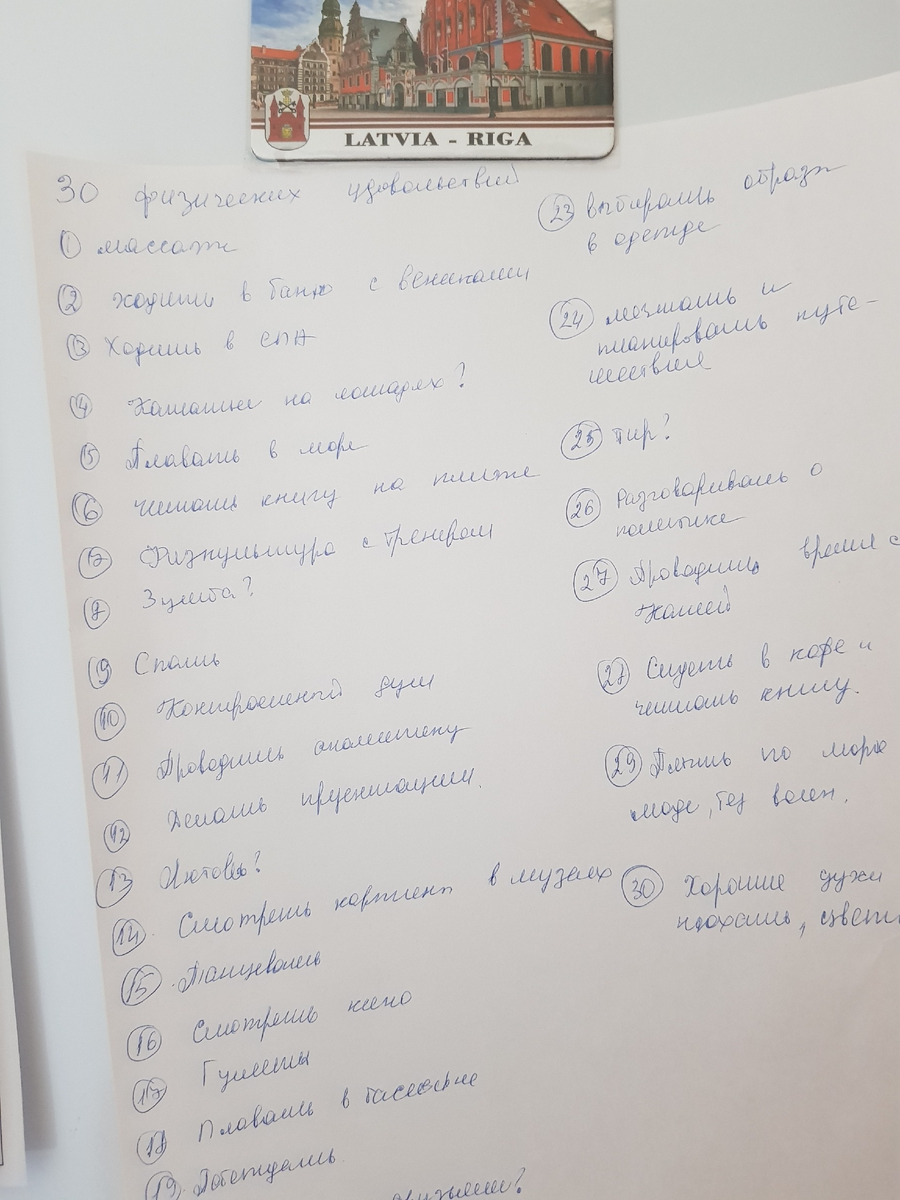 LATVIA - RIGA
30 физических удовольствий
1 массаж
2 ходить в баню с вениками
3 Ходить в спа
4 Катание на лошадях?
5 Плавать в море
6 читать книгу на пляже
7 Физкультура с тренером
8 Зумба?
9 Спать
10 Контрастный душ
11 Проводить аналитику
12 Делать презентации.
13 Любовь?
14. Смотреть картины в музеях
15. Танцевать
16 Смотреть кино
17 Гулять
18 Плавать в бассейне
19. Побеждать
друзьями?
23 выбирать образы
в одежде
24 мечтать и
планировать путе-
шествия
25 Тир?
26 Разговаривать о
политике
27 Проводить время с
Катей
27 Сидеть в кафе и
читать книгу.
29 Плыть по морю
воде, без волн.
30 Хорошие духи
нюхать,